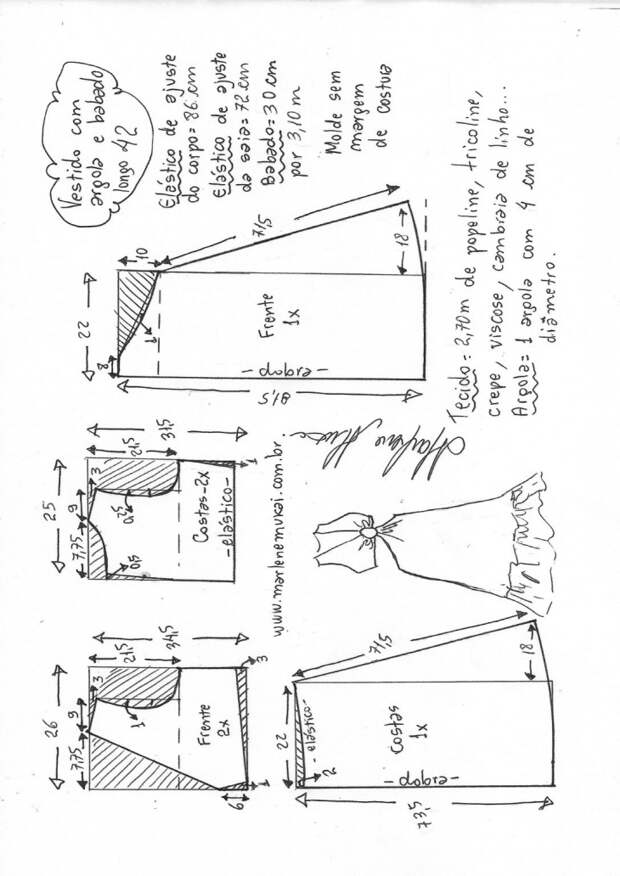 Vestido com
argola e babado
longo 42
Elástico de ajuste
do corpo = 86 cm
Elástico de ajuste
da saia = 72 cm
Babado = 30 cm
por 3,10 m
Molde sem
margem
de costura
22
10
8
1
71,5
18
Frente
1x
- dobra -
81,5
Tecido = 2,70m de popeline, tricoline,
crepe, viscose, cambraia de linho...
Argola = 1 argola com 4 cm de
diâmetro.
25
7,75
9
3
21,5
31,5
0,5
0,5
Costas - 2x
- elástico -
1
www.marlenemukai.com.br.
26
7,75
9
3
21,5
34,5
1
Frente
2x
3
6
1
22
71,5
18
- elástico -
2
Costas
1x
- dobra -
73,5